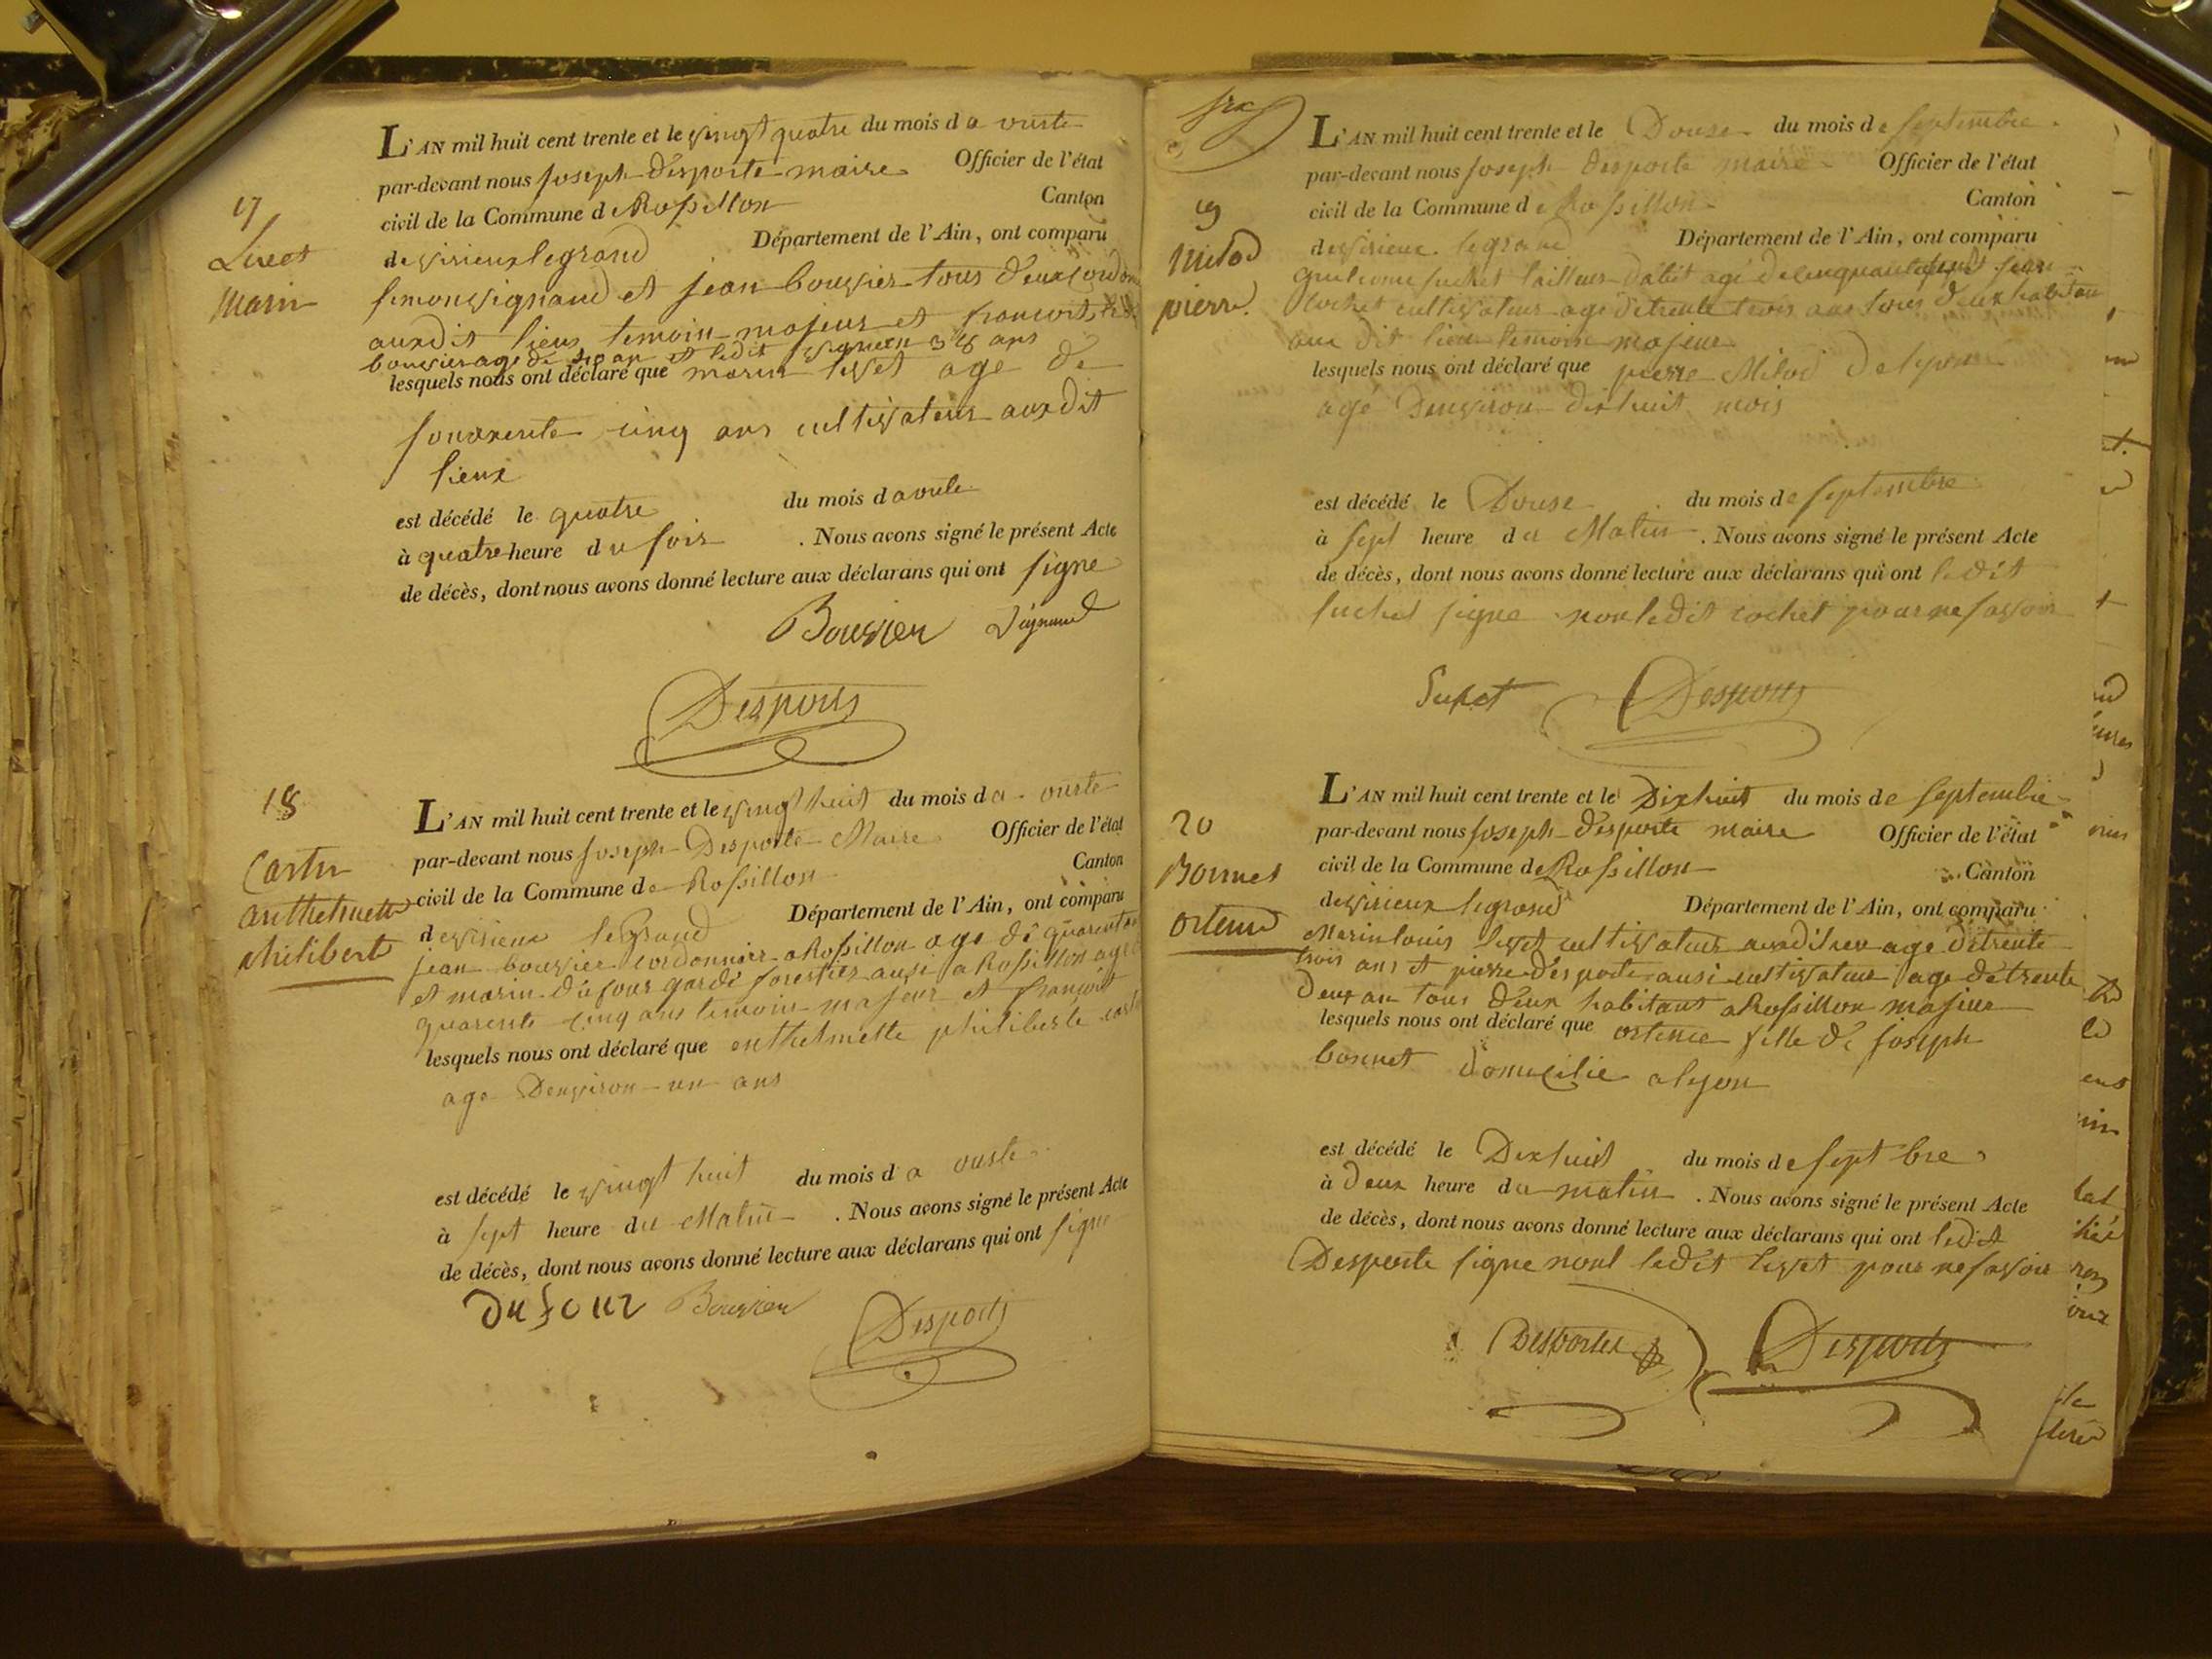 17
Livet
Marin
L'AN mil huit cent trente et le vingt quatre du mois d a ouste
par-devant nous joseph desporte maire Officier de l'état
civil de la Commune de Rossillon Canton
de virieux legrand Département de l'Ain, ont comparu
simon vignand et jean bouvier tous deux
auxdit lieux temoin majeur et francoit
bouvier age de ans et ledit ans
lesquels nous ont déclaré que marin livet age de
souaxente cinq ans cultivateur auxdit
lieux
est décédé le quatre du mois d avoute
à quatre heure du soir . Nous avons signé le présent Acte
de décès, dont nous avons donné lecture aux déclarans qui ont signe
Bouvier Vignand
Desportes
18
Cartu
anthelmette
philibert
L'AN mil huit cent trente et le vingt huit du mois d a ouste
par-devant nous joseph Desporte Maire Officier de l'état
civil de la Commune de Rossillon Canton
de virieux leGrand Département de l'Ain, ont comparu
jean bouvier cordonnier a Rossillon age de quarente
et marin dufour garde forestier ausi a Rossillon age
quarente cinq ans temoin majeur et francoit
lesquels nous ont déclaré que enthelmette philiberte
age Denviron un ans
est décédé le vingt huit du mois d a ouste
à sept heure du Matin . Nous avons signé le présent Acte
de décès, dont nous avons donné lecture aux déclarans qui ont signe
dufour Bouvier Desportes
six
19
Milod
pierre
L'AN mil huit cent trente et le Douse du mois de septembre
par-devant nous joseph desporte maire Officier de l'état
civil de la Commune de Rossillon Canton
de virieux legrand Département de l'Ain, ont comparu
suchet tailleur age de cinquante jean
cochet cultivateur age de trente trois ans tous deux habitant
aux dit lieux temoin majeur
lesquels nous ont déclaré que pierre Milod De lyon
agé Denviron dixhuit mois
est décédé le Douse du mois de septembre
à sept heure du Matin . Nous avons signé le présent Acte
de décès, dont nous avons donné lecture aux déclarans qui ont ledit
suchet signe non ledit cochet pour ne savoir
Desportes
20
Bonnet
ortense
L'AN mil huit cent trente et le Dixhuit du mois de septembre
par-devant nous joseph desporte maire Officier de l'état
civil de la Commune de Rossillon Canton
de virieux legrand Département de l'Ain, ont comparu
Marin louis livet cultivateur auxdit lieu age de trente
trois ans et pierre desporte ausi cultivateur age de trente
Deux an tous deux habitant a Rossillon majeur
lesquels nous ont déclaré que ortence fille de joseph
bonnet domicilie a lyon
est décédé le Dixhuit du mois de septbre
à Deux heure du matin . Nous avons signé le présent Acte
de décès, dont nous avons donné lecture aux déclarans qui ont ledit
Desporte signe nont ledit livet pour ne savoir
Desportes Desportes